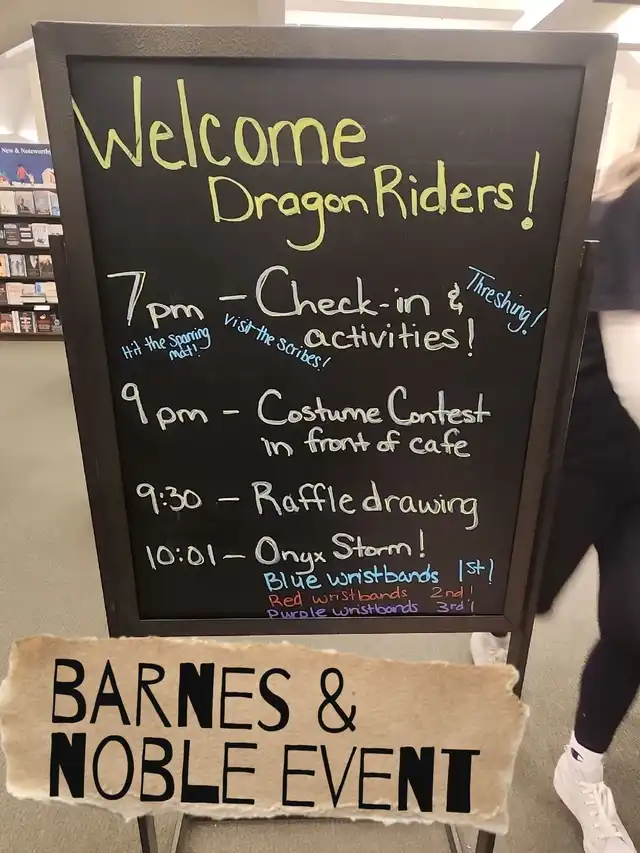 New & Noteworthy
Welcome
Dragon Riders!
7pm - Check-in & Threshing!
activities!
Hit the sparring
mat!
visit the scribes!
9pm - Costume Contest
in front of cafe
9:30 - Raffle drawing
10:01 - Onyx Storm!
Blue wristbands 1st!
Red wristbands 2nd!
Purple wristbands 3rd!
BARNES &
NOBLE EVENT